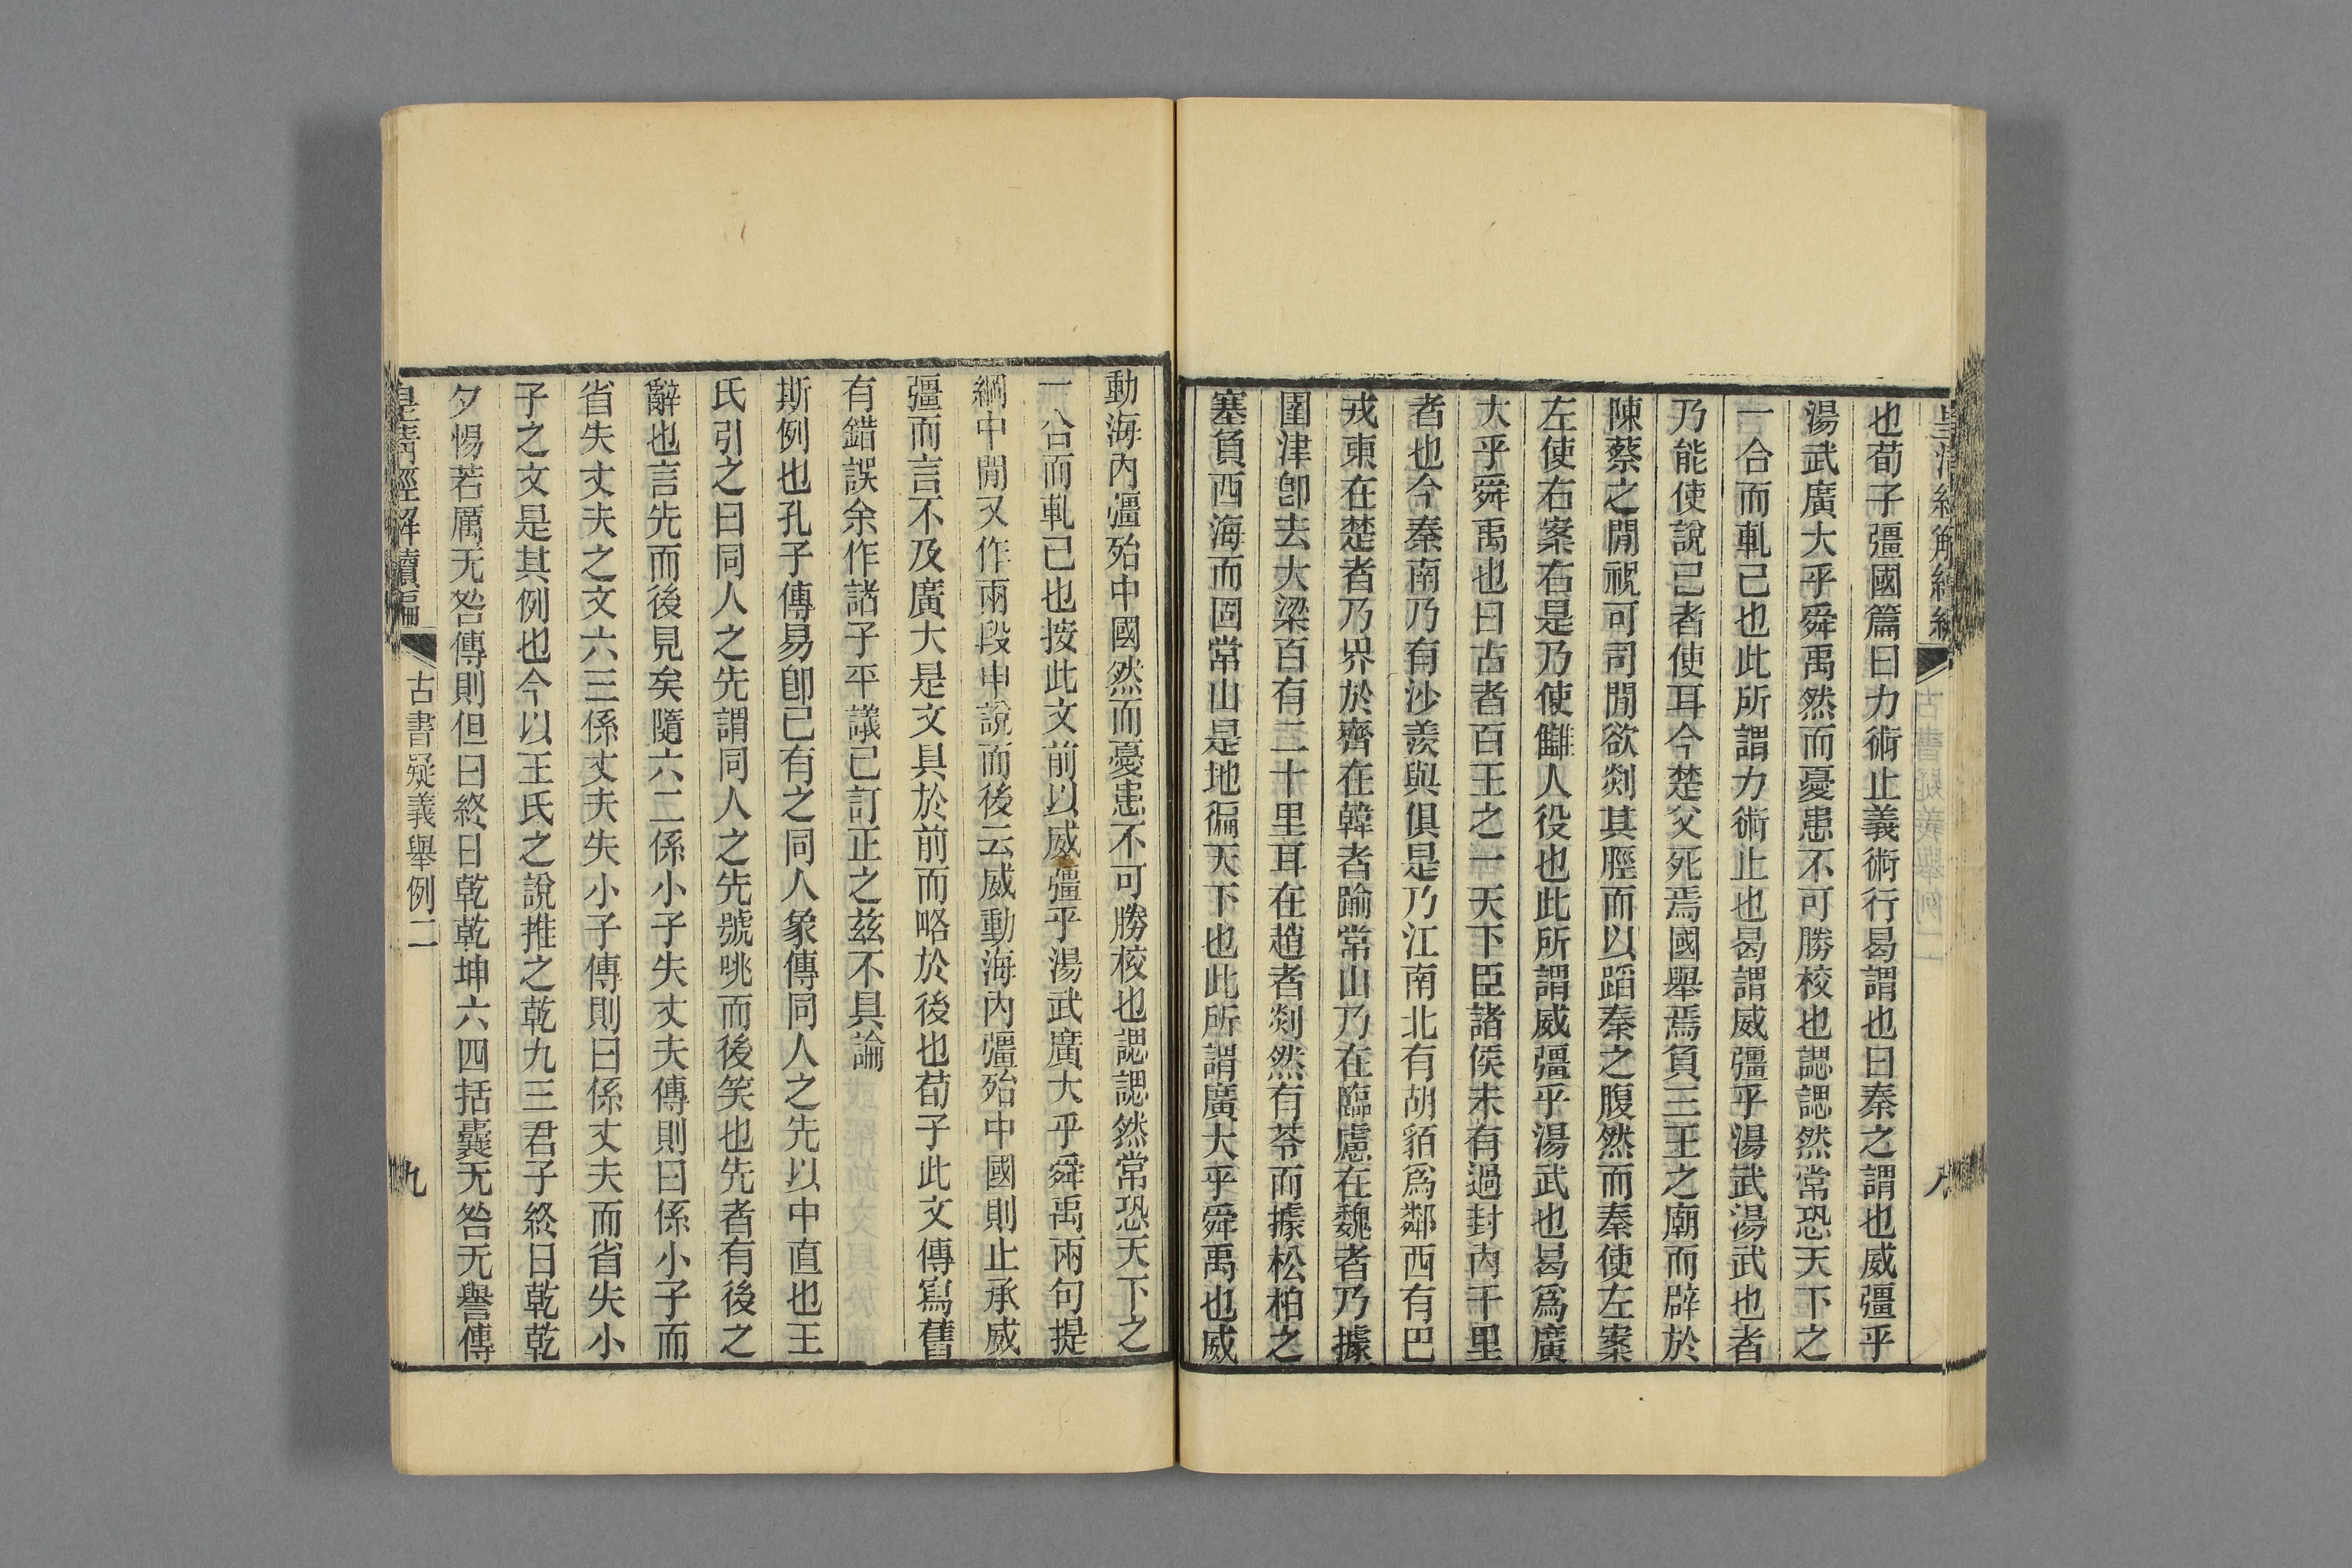 也荀子彊國篇曰力術止義術行曷謂也曰秦之謂也威彊乎
湯武廣大乎舜禹然而憂患不可勝校也諰諰然常恐天下之
一合而軋己也此所謂力術止也曷謂威彊乎湯武湯武也者
乃能使說己者使耳今楚父死焉國舉焉負三王之廟而辟於
陳蔡之閒視可司閒欲剡其脛而以蹈秦之腹然而秦使左案
左使右案右是乃使讎人役也此所謂威彊乎湯武也曷爲廣
大乎舜禹也曰古者百王之一天下臣諸侯未有過封內千里
者也今秦南乃有沙羨與俱是乃江南北有胡貉爲鄰西有巴
戎東在楚者乃界於齊在韓者踰常山乃在臨慮在魏者乃據
圍津卽去大梁百有二十里耳在趙者剡然有苓而據松柏之
塞負西海而固常山是地徧天下也此所謂廣大乎舜禹也威
動海內彊殆中國然而憂患不可勝校也諰諰然常恐天下之
一合而軋己也按此文前以威彊乎湯武廣大乎舜禹兩句提
綱中閒又作兩段申說而後云威動海內彊殆中國則止承威
彊而言不及廣大是文具於前而略於後也荀子此文傳寫舊
有錯誤余作諸子平議已訂正之茲不具論
斯例也孔子傳易卽已有之同人象傳同人之先以中直也王
氏引之曰同人之先謂同人之先號咷而後笑也先者有後之
辭也言先而後見矣隨六二係小子失丈夫傳則曰係小子而
省失丈夫之文六三係丈夫失小子傳則曰係丈夫而省失小
子之文是其例也今以王氏之說推之乾九三君子終日乾乾
夕惕若厲无咎傳則但曰終日乾乾坤六四括囊无咎无譽傳
皇清經解續編
古書疑義舉例二
九